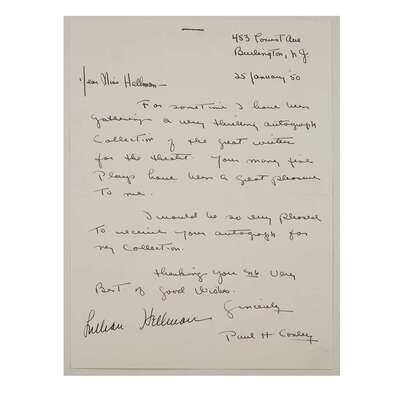 483 Locust Ave
Burlington, N J
25 January '50
Dear Miss Hellman—
For sometime I have been
gathering a very thrilling autograph
Collection of the great writers
for the theatre. Your many fine
Plays have been a great pleasure
to me.
I would be so very pleased
to receive your autograph for
my Collection.
Thanking you with Very
Best of Good Wishes
Sincerely
Lillian Hellman
Paul H